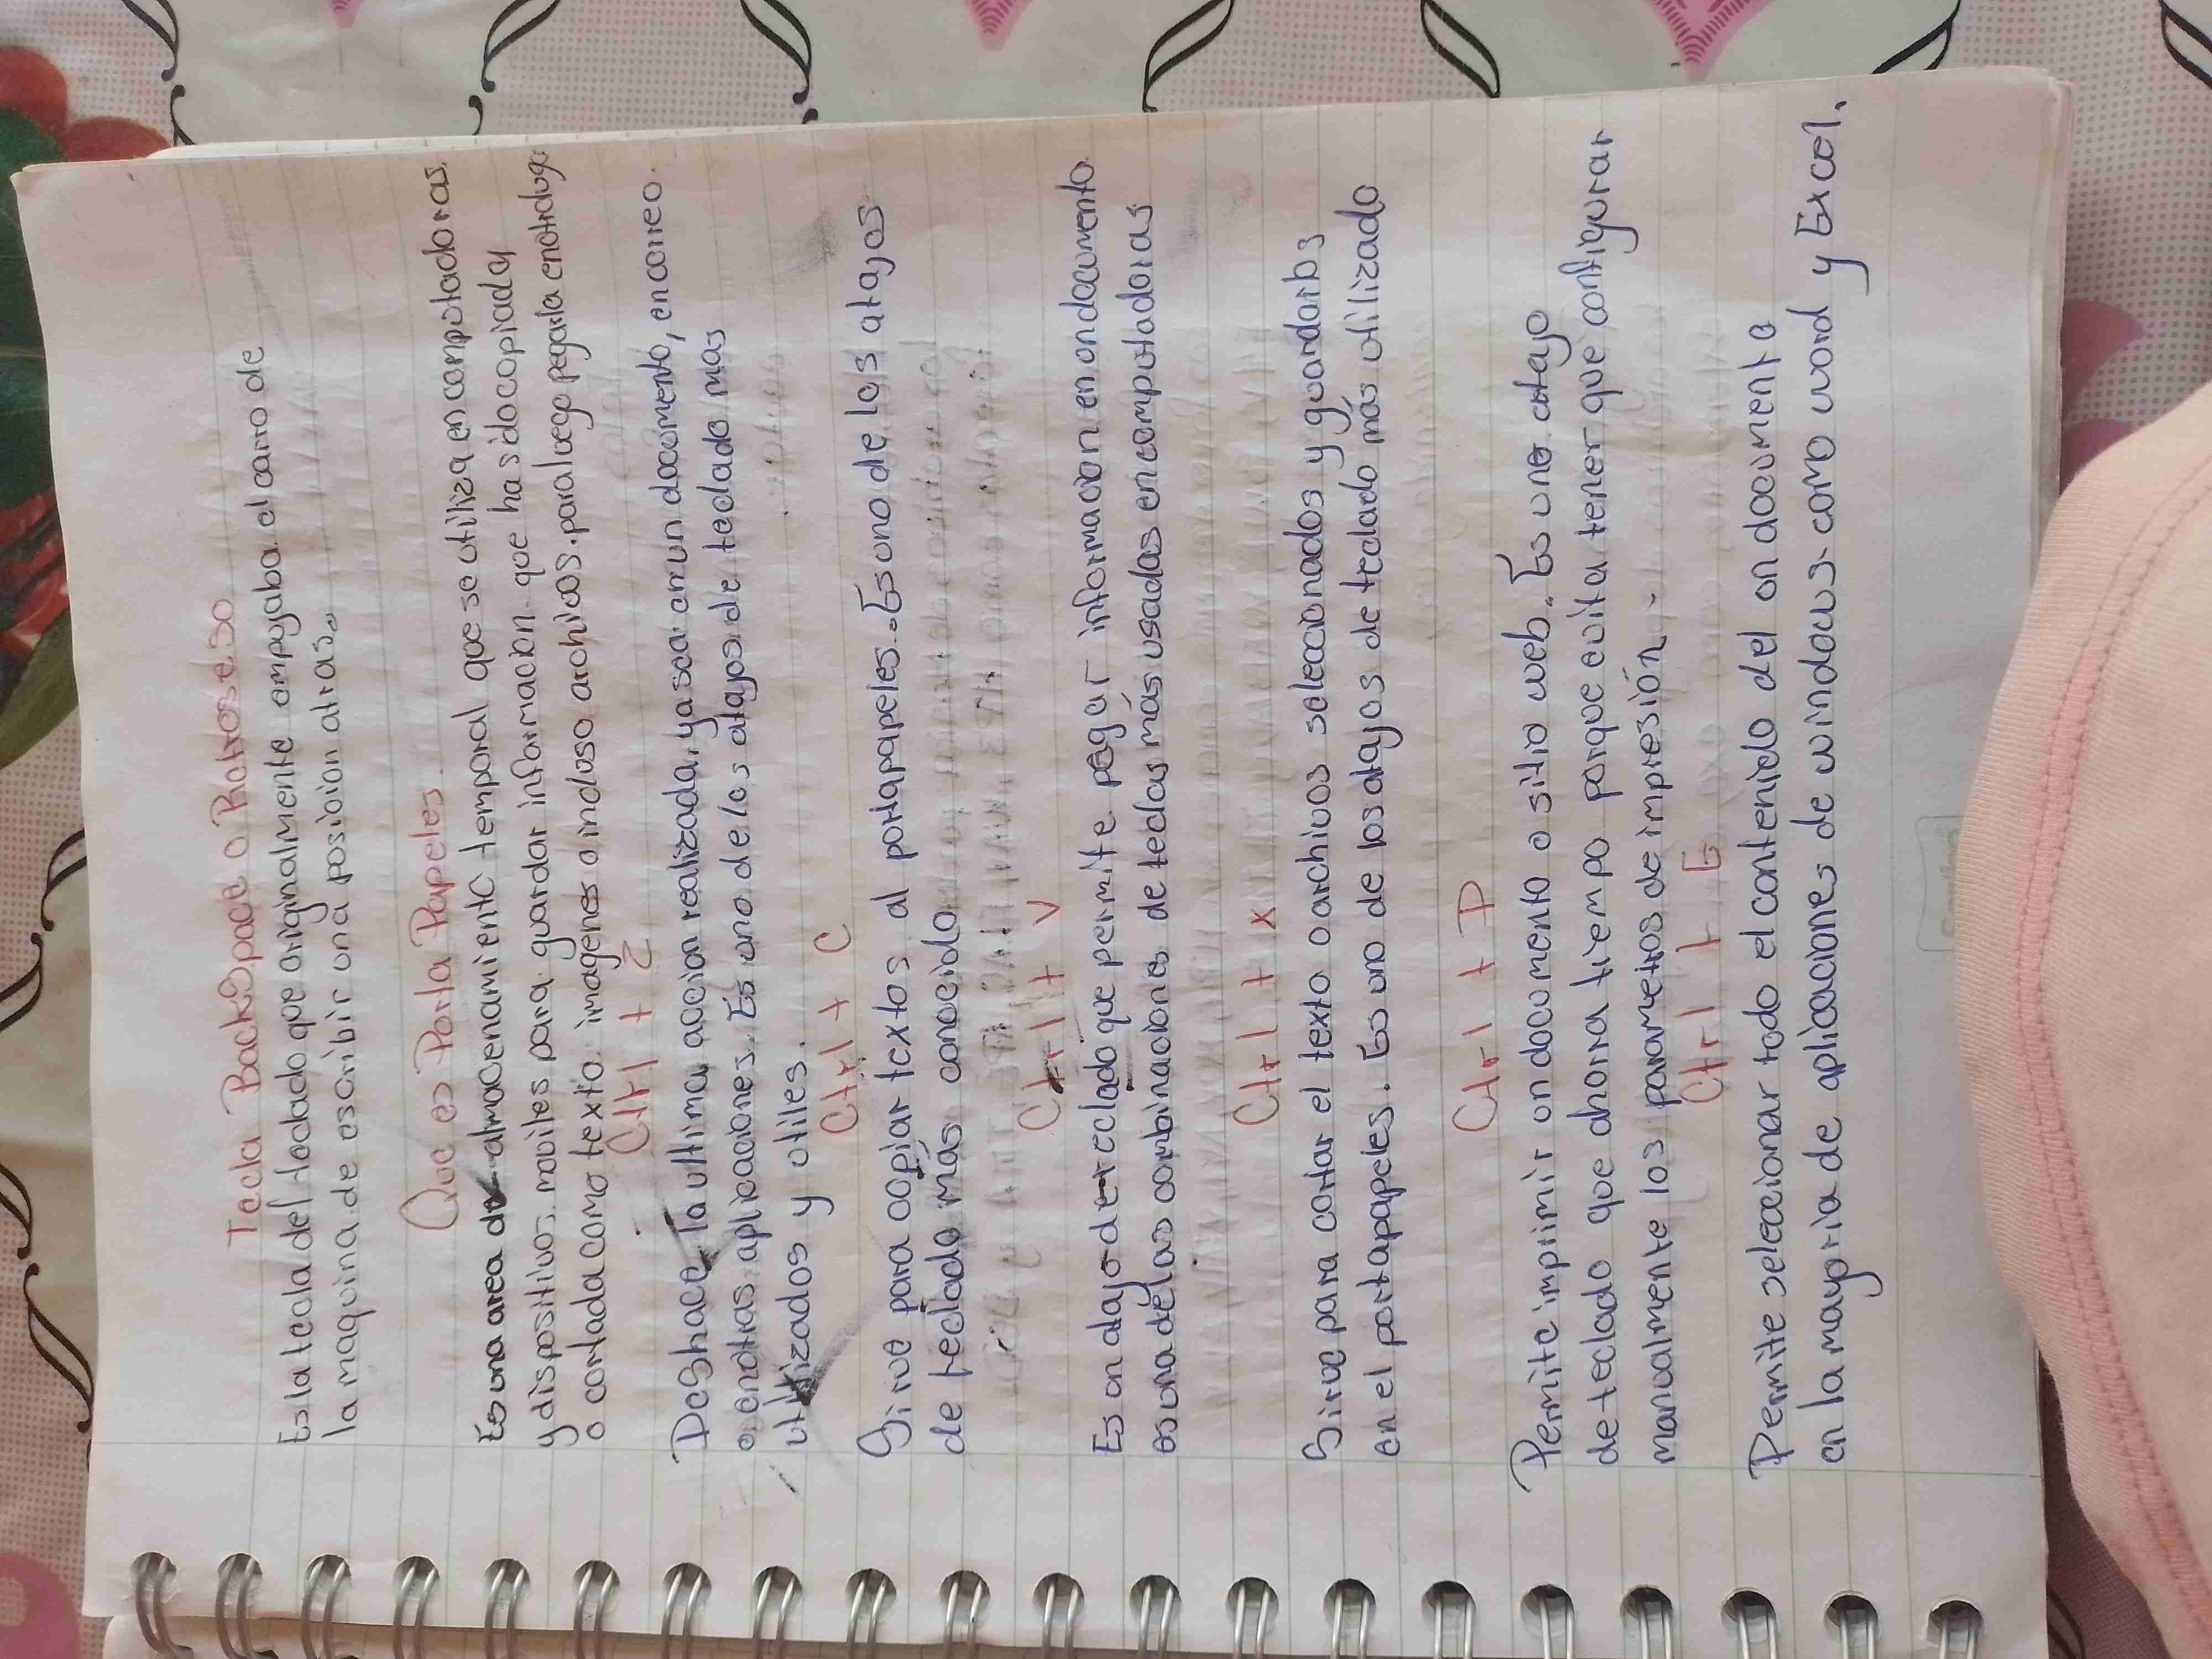 Tecla BackSpace o Retroseso
Es la tecla del teclado que originalmente empujaba el carro de
la maquina de escribir una posicion atras.
Que es Porta Papeles
Es una area de almacenamiento temporal que se utiliza en computadoras.
y dispositivos moviles para guardar informacion que ha sido copiada y
o cortada como texto. imagenes o incluso archivos. para luego pegarla en otro lugar
Ctrl + Z
Deshace la ultima accion realizada, ya sea en un documento, en correo.
o en otras aplicaciones. Es uno de los atajos de teclado mas
utilizados y utiles.
Ctrl + C
Sirve para copiar textos al portapapeles. Es uno de los atajos
de teclado más conocido
Ctrl + V
Es un atajo de teclado que permite pegar informacion en un documento
es una de las combinaciones de teclas más usadas en computadoras
Ctrl + X
Sirve para cortar el texto o archivos seleccionados y guardarlos
en el portapapeles. Es uno de los atajos de teclado más utilizado
Ctrl + P
Permite imprimir un documento o sitio web. Es uno atajo
de teclado que ahorra tiempo porque evita tener que configurar
manualmente los parametros de impresión.
Ctrl + E
Permite seleccionar todo el contenido del un documenta
en la mayoria de aplicaciones de windows. como word y Excel.